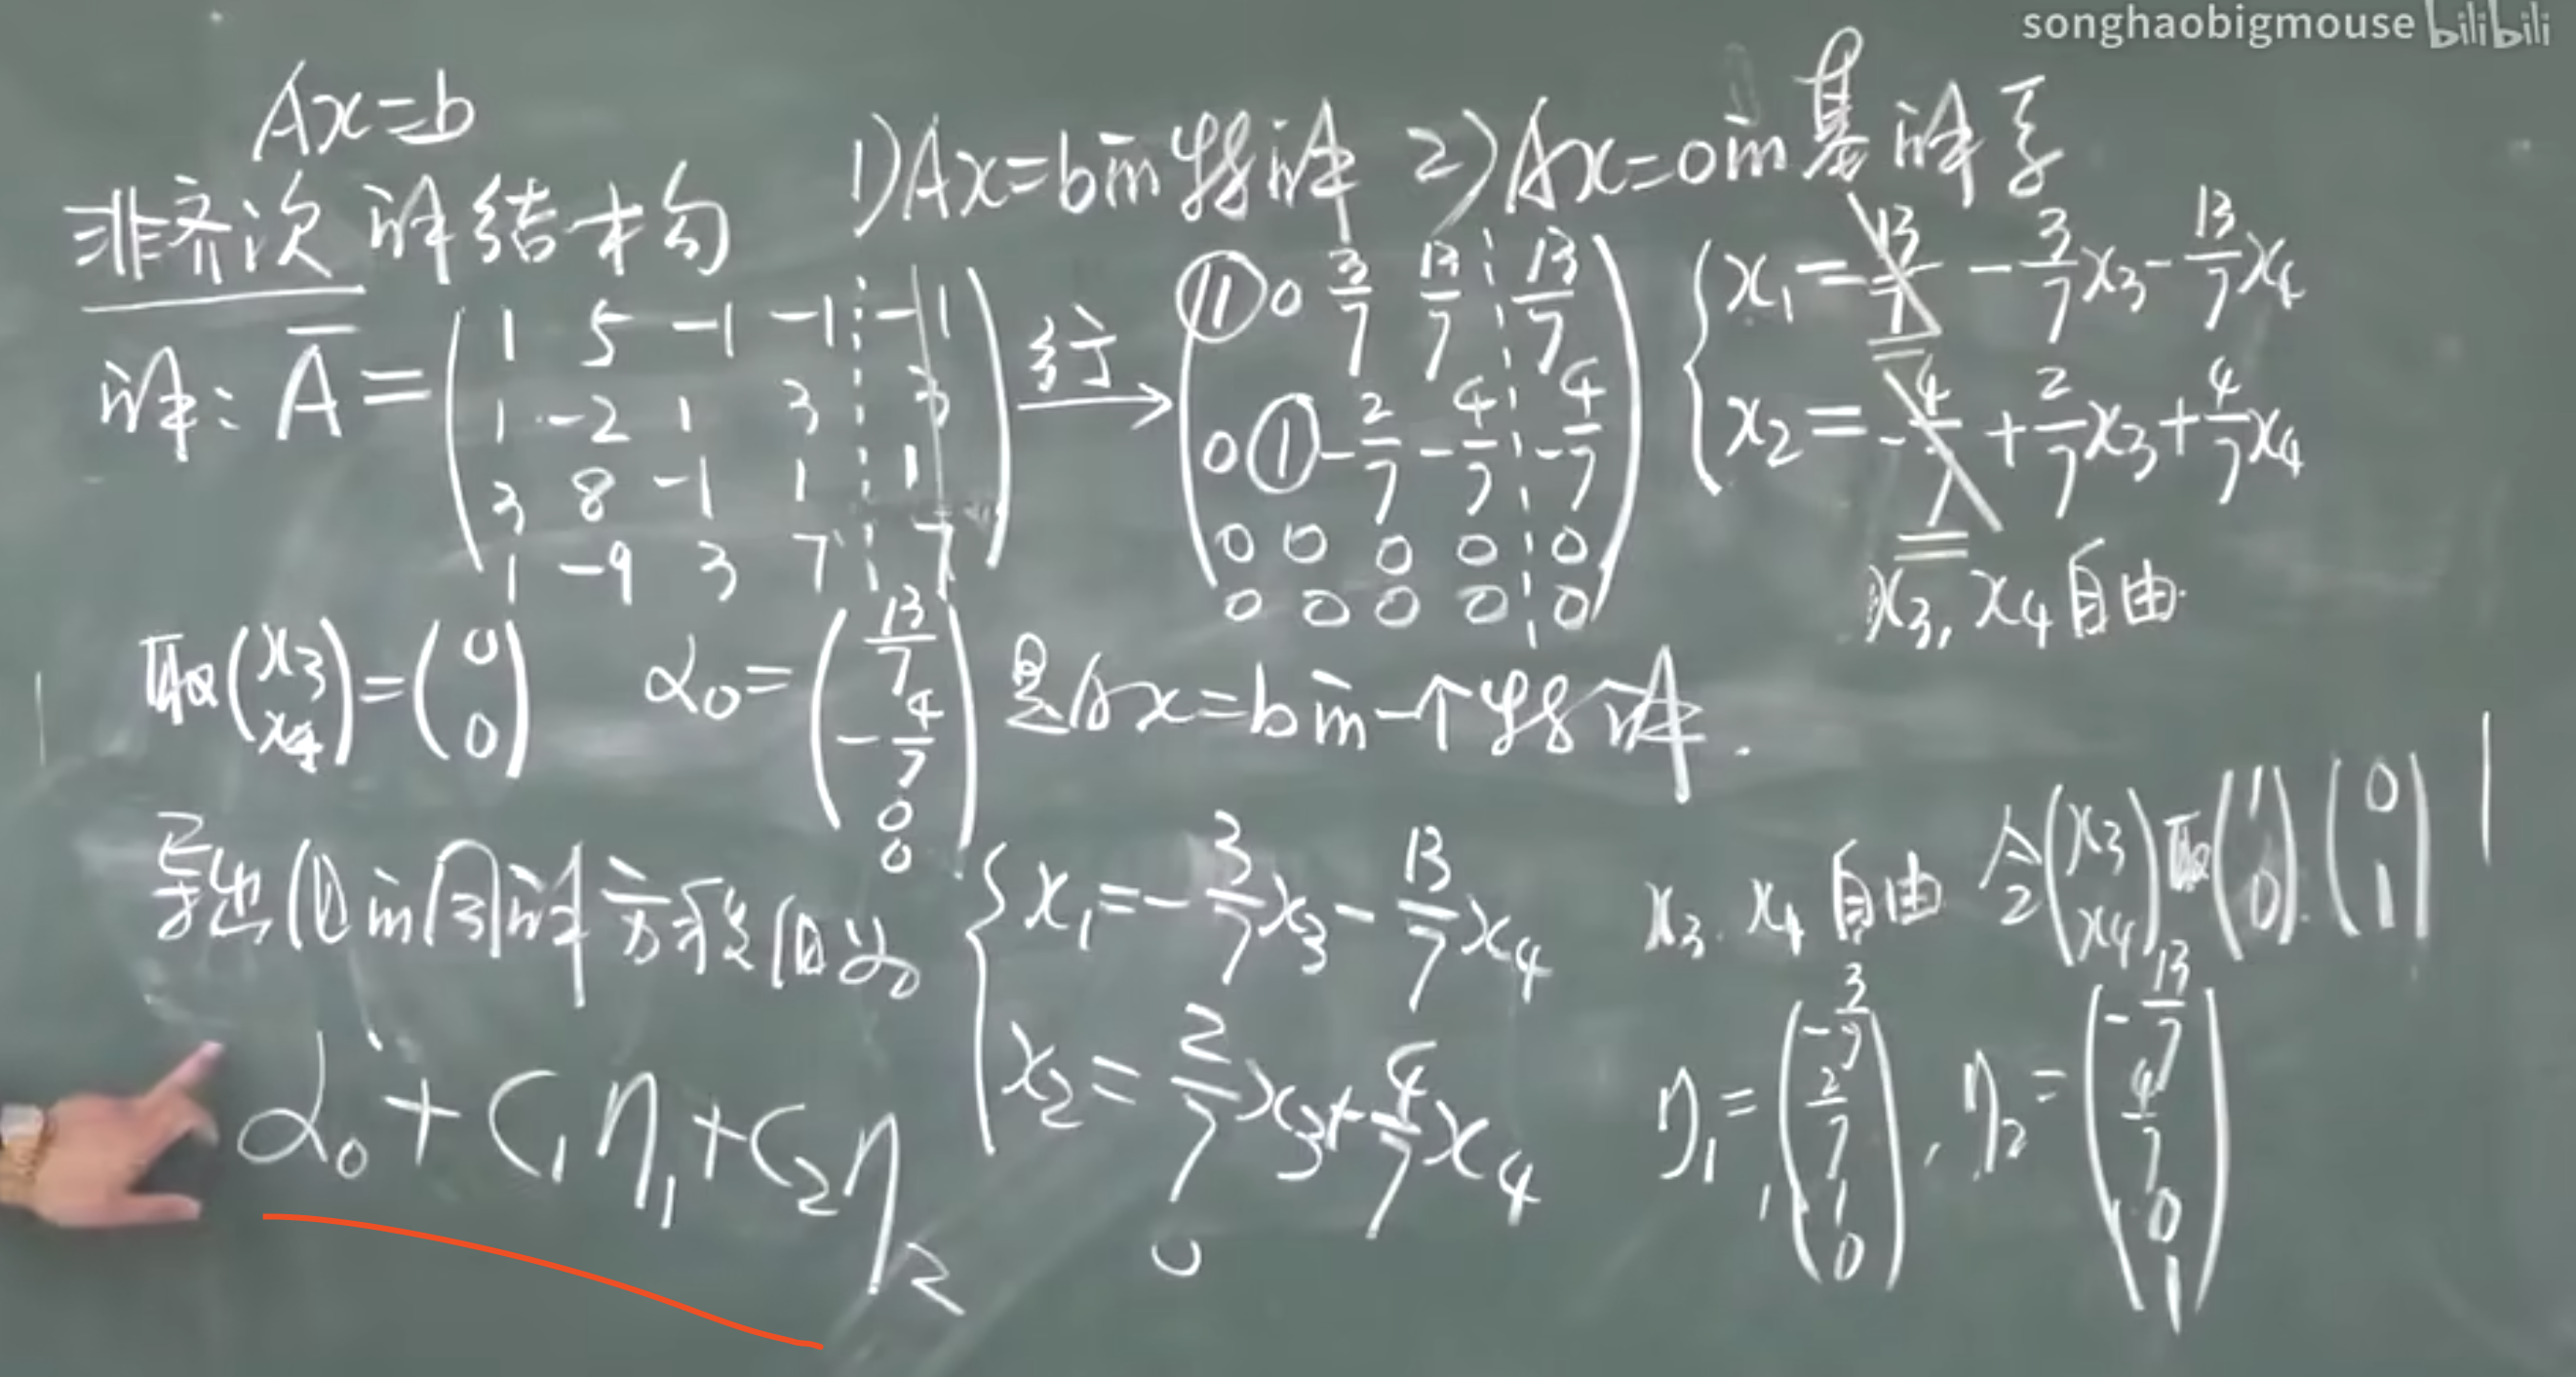 songhaobigmouse bilibili
Ax=b
非齐次 解结构
1) Ax=b的特解 2) Ax=0的基解系
解: Ā = ( 1 5 -1 -1 ┆ -1
1 -2 1 3 ┆ 3
3 8 -1 1 ┆ 1
1 -9 3 7 ┆ 7 )
行 →
( ① 0 3/7 13/7 ┆ 13/7
0 ① -2/7 -4/7 ┆ -4/7
0 0 0 0 ┆ 0
0 0 0 0 ┆ 0 )
{ x₁ = 13/7 - 3/7 x₃ - 13/7 x₄
x₂ = -4/7 + 2/7 x₃ + 4/7 x₄
x₃, x₄ 自由
取 (x₃ x₄) = (0 0) α₀ = (13/7 -4/7 0 0) 是Ax=b的一个特解.
导出组的同解方程组为
{ x₁ = -3/7 x₃ - 13/7 x₄
x₂ = 2/7 x₃ + 4/7 x₄
0
x₃. x₄ 自由 令 (x₃ x₄) 取 (1 0). (0 1)
η₁ = (-3/7 2/7 1 0), η₂ = (-13/7 4/7 0 1)
α₀ + c₁η₁ + c₂η₂